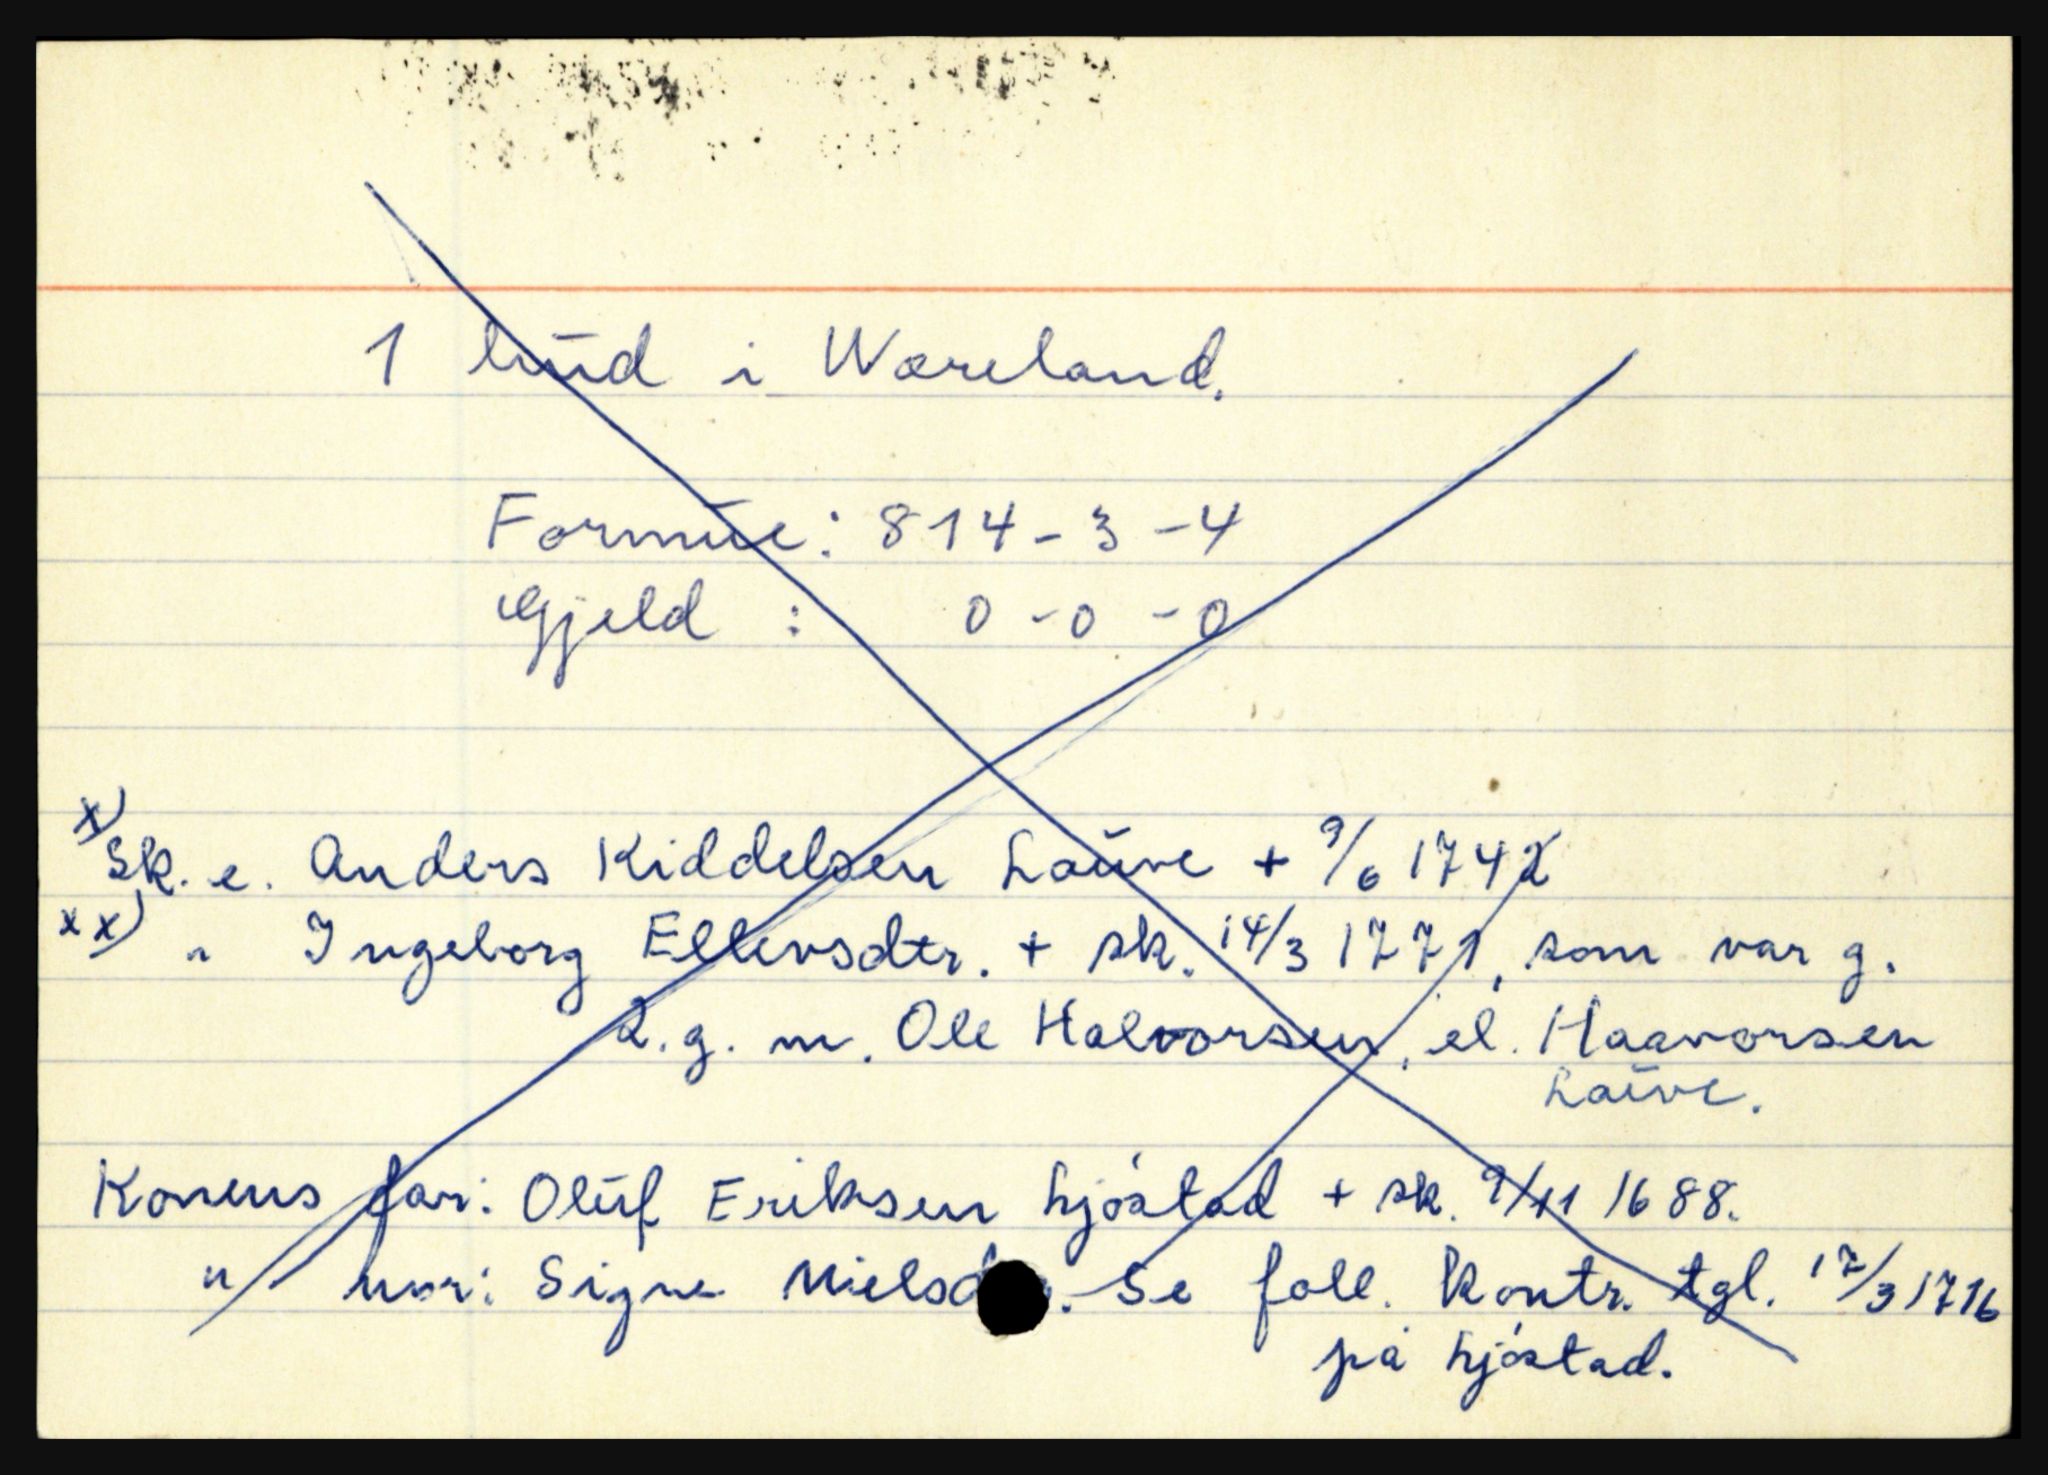 1 hud i Wæreland.
Formue: 814-3-4
Gjeld : 0-0-0
x)
Sk. e. Anders Kiddelsen Lauve + 9/6 1742
xx) " Ingeborg Ellevsdtr. + sk. 14/3 1771, som var g.
2.g. m. Ole Halvorsen, el. Haavorsen
Lauve.
Konens far: Oluf Eriksen Ljøstad + sk. 9/11 1688.
" mor: Signe Nielsd. Se foll. kontr. tgl. 17/3 1716
på Ljøstad.